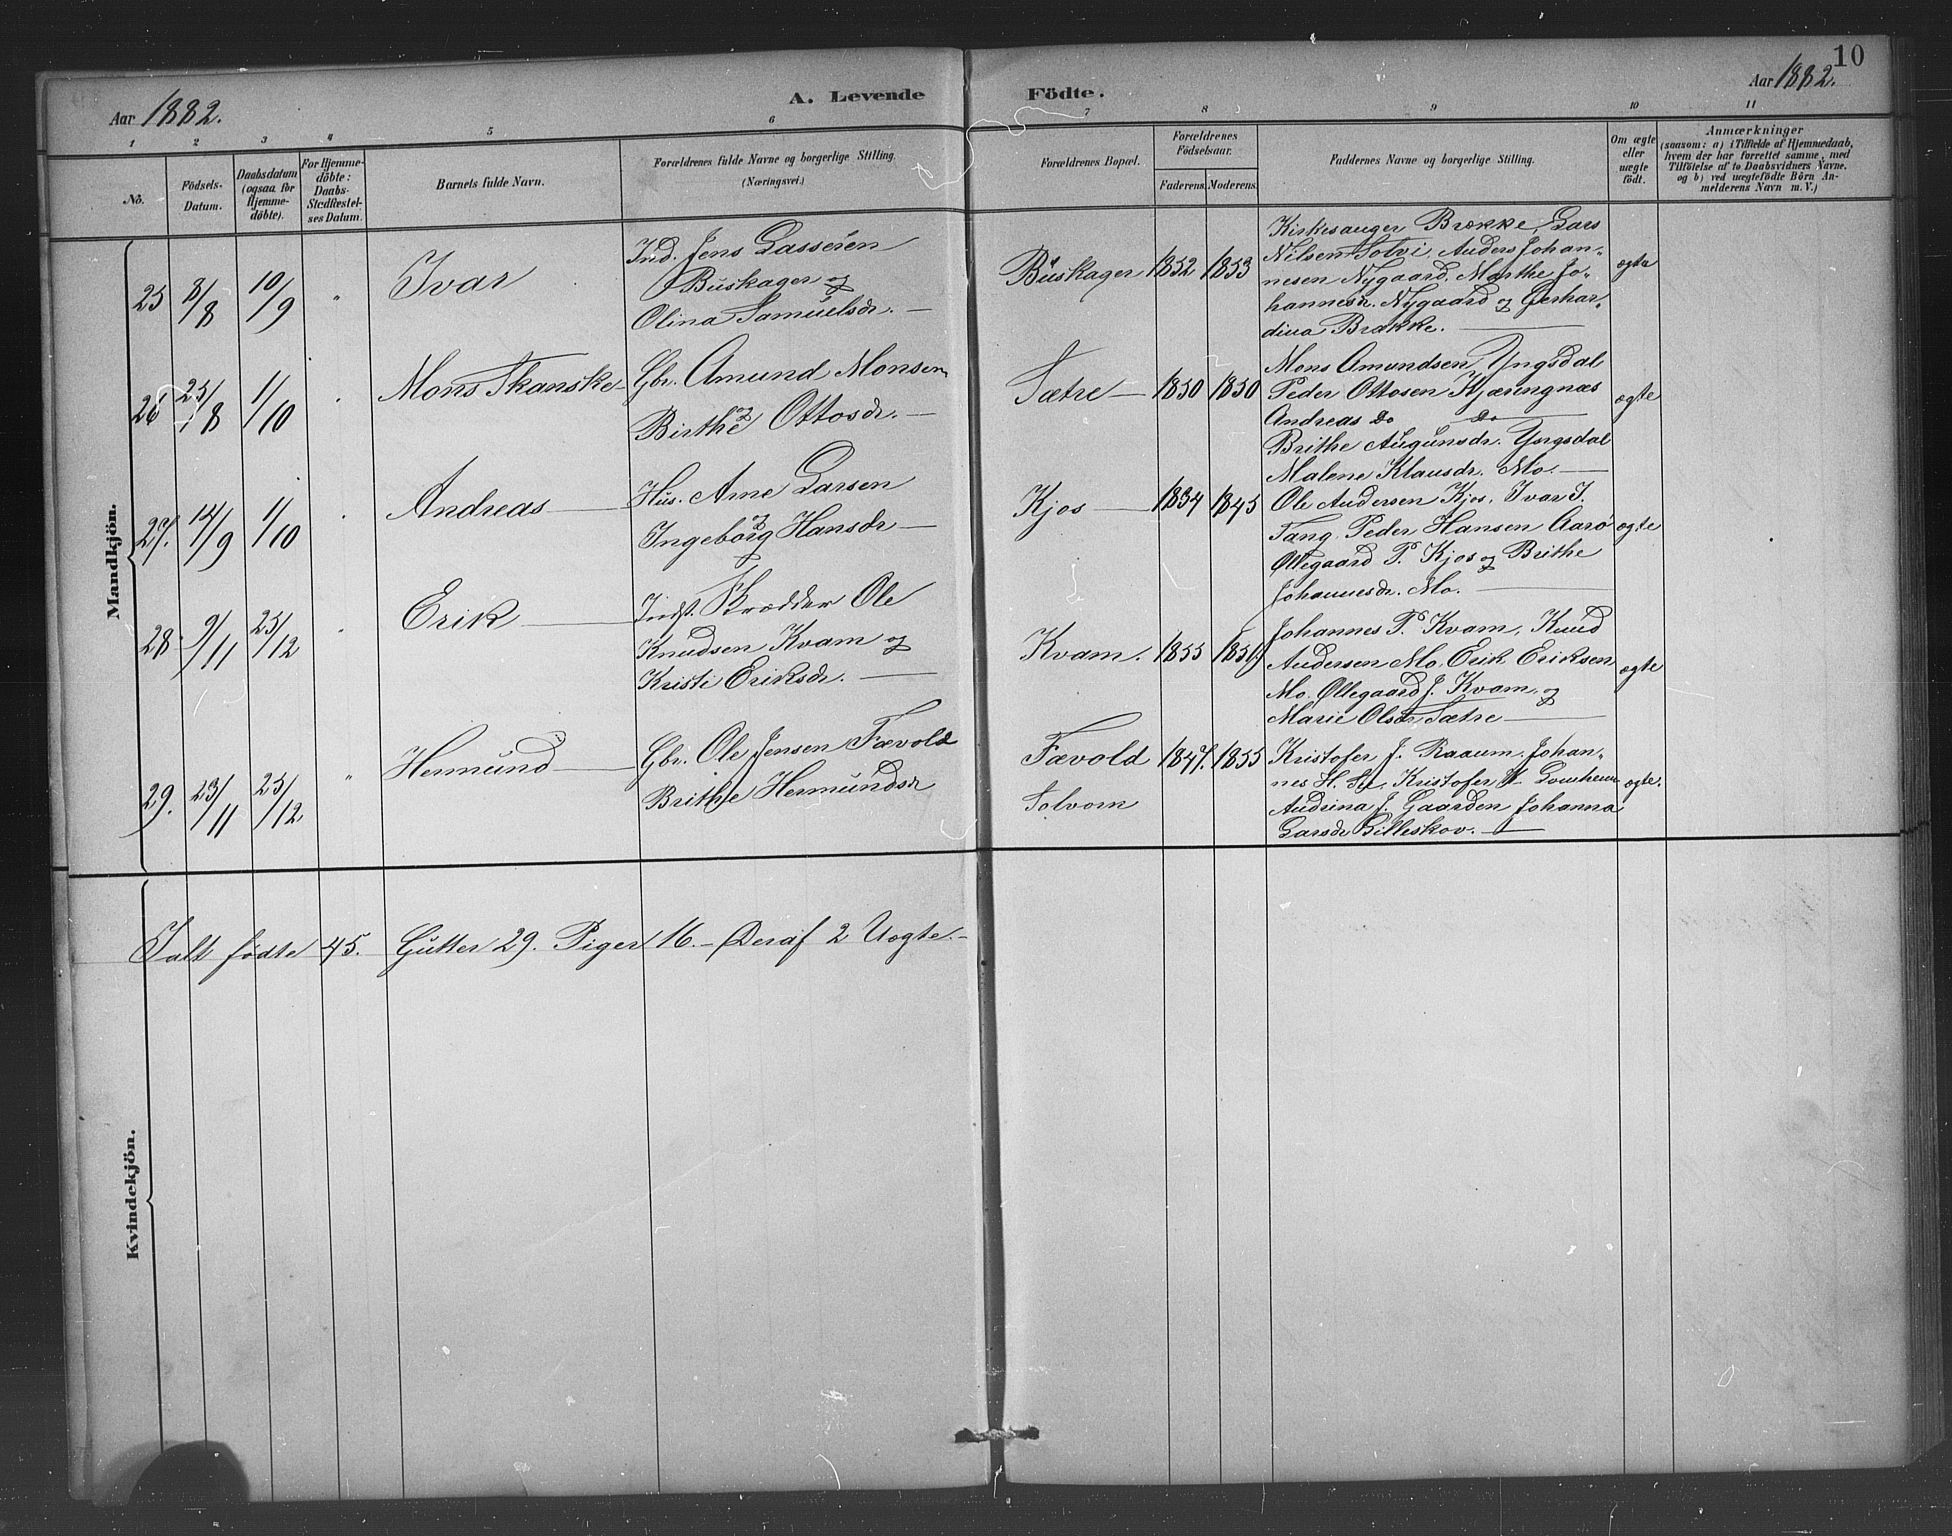 10
Aar 1882.
A. Levende Födte.
Aar 1882.
1 2 3 4 5 6 7 8 9 10 11
No.
Födsels-
Datum.
Daabsdatum
(ogsaa for
Hjemme-
döbte).
For Hjemme-
döbte:
Daabs-
Stedfestel-
ses Datum.
Barnets fulde Navn.
Forældrenes fulde Navne og borgerlige Stilling.
(Næringsvei.)
Forældrenes Bopæl.
Forældrenes
Födselsaar.
Faderens. Moderens.
Faddernes Navne og borgerlige Stilling.
Om ægte
eller
uægte
födt.
Anmærkninger
(saasom: a) i Tilfælde af Hjemmedaab,
hvem der har forrettet samme, med
Tilföielse af to Daabsvidners Navne.
og b) ved uægtefödte Börn An-
melderens Navn m. V.)
Mandkjön.
25 8/8 10/9 " Ivar
Ind. Jens Lassesen
Buskager og
Olina Samuelsdr. —
Buskager 1852 1853
Kirkesanger Brække, Lars
Nilsen Solvi, Anders Johan-
nesen Nygaard, Marthe Jo-
hannesdr. Nygaard og Gerhar-
dina Brække. —
ægte
26 25/8 1/10 " Mons Skanske
Gbr. Amund Monsen
og
Birthe Ottosdr. —
Sætre — 1850 1850
Mons Amundsen Yngsdal
Peder Ottosen Kjæringnæs
Andreas Do Do
Brithe Augunsdr. Yngsdal
Malene Klausdr. Mo. —
ægte
27. 14/9 1/10 " Andreas —
Hus. Arne Larsen
og
Ingeborg Hansdr —
Kjos — 1834 1845
Ole Andersen Kjos, Ivar J.
Tang, Peder Hansen Aarø
Ollegaard P. Kjos og Brithe
Johannesdr. Mo. —
ægte
28 9/11 25/12 " Erik —
Indst. Skrædder Ole
Knudsen Kvam og
Kristi Eriksdr. —
Kvam. 1855
Johannes P. Kvam, Knud
Andersen Mo, Erik Eriksen
Mo, Ollegaard J. Kvam, og
Marie Olsdr Sætre —
ægte
29. 23/11 25/12 " Hermund —
Gbr. Ole Jensen Fævold
Brithe Hermundsdr
Fævold 1847. 1855
Solvorn
Kristofer J. Raaum, Johan-
nes H. Kristofer
Andrina J. Gaarden Johanna
Larsdr Billeskov. —
ægte.
Ialt fødte 45. Gutter 29. Piger 16. — Deraf 2 Uægte. —
Kvindekjön.